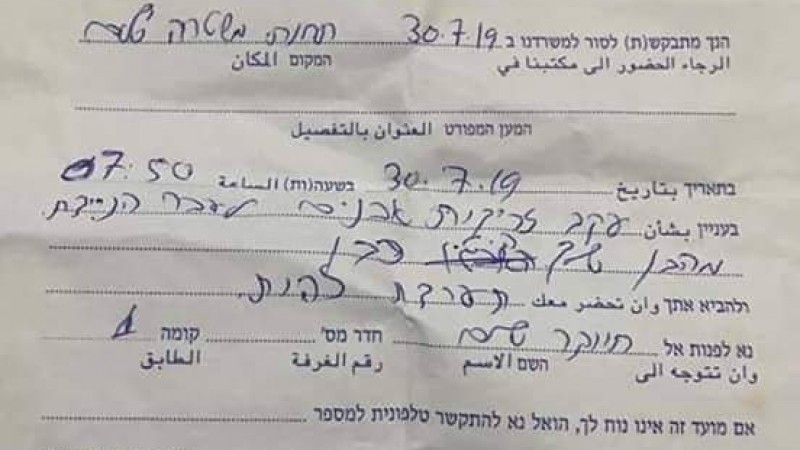 הנך מתבקש(ת) לסור למשרדנו ב 30.7.19 תחנת משטרה שלם
الرجاء الحضور الى مكتبنا في המקום المكان
המען המפורט العنوان بالتفصيل
בתאריך بتاريخ 30.7.19 בשעה(ות) الساعة 07:50
בעניין بشأن עקב זריקות אבנים לעבר הניידת.
מהבן שלך בן
ולהביא אתך وان تحضر معك תעודת זהות.
נא לפנות אל חוקר שלם חדר מס' קומה 1
وان تتوجه الى השם الاسم رقم الغرفة الطابق
אם מועד זה אינו נוח לך, הואל נא להתקשר טלפונית למספר